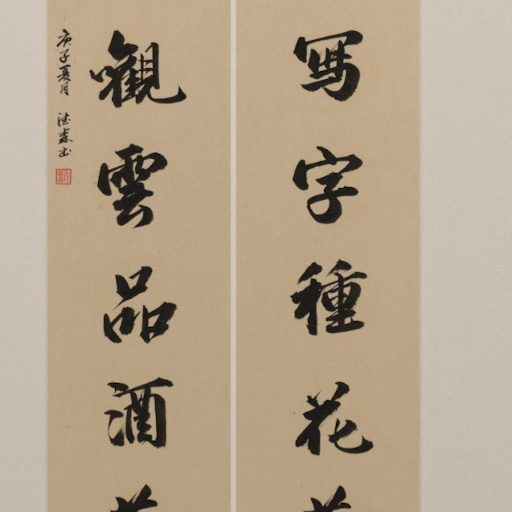 寫字種花
觀雲品酒
庚子夏月
德森书